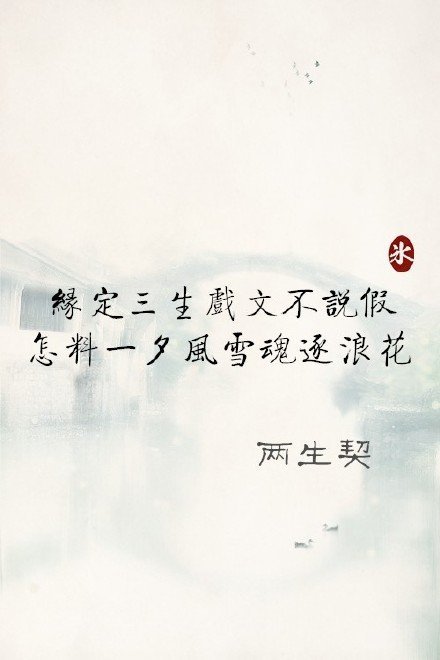 氷
緣定三生戲文不說假
怎料一夕風雪魂逐浪花
两生契